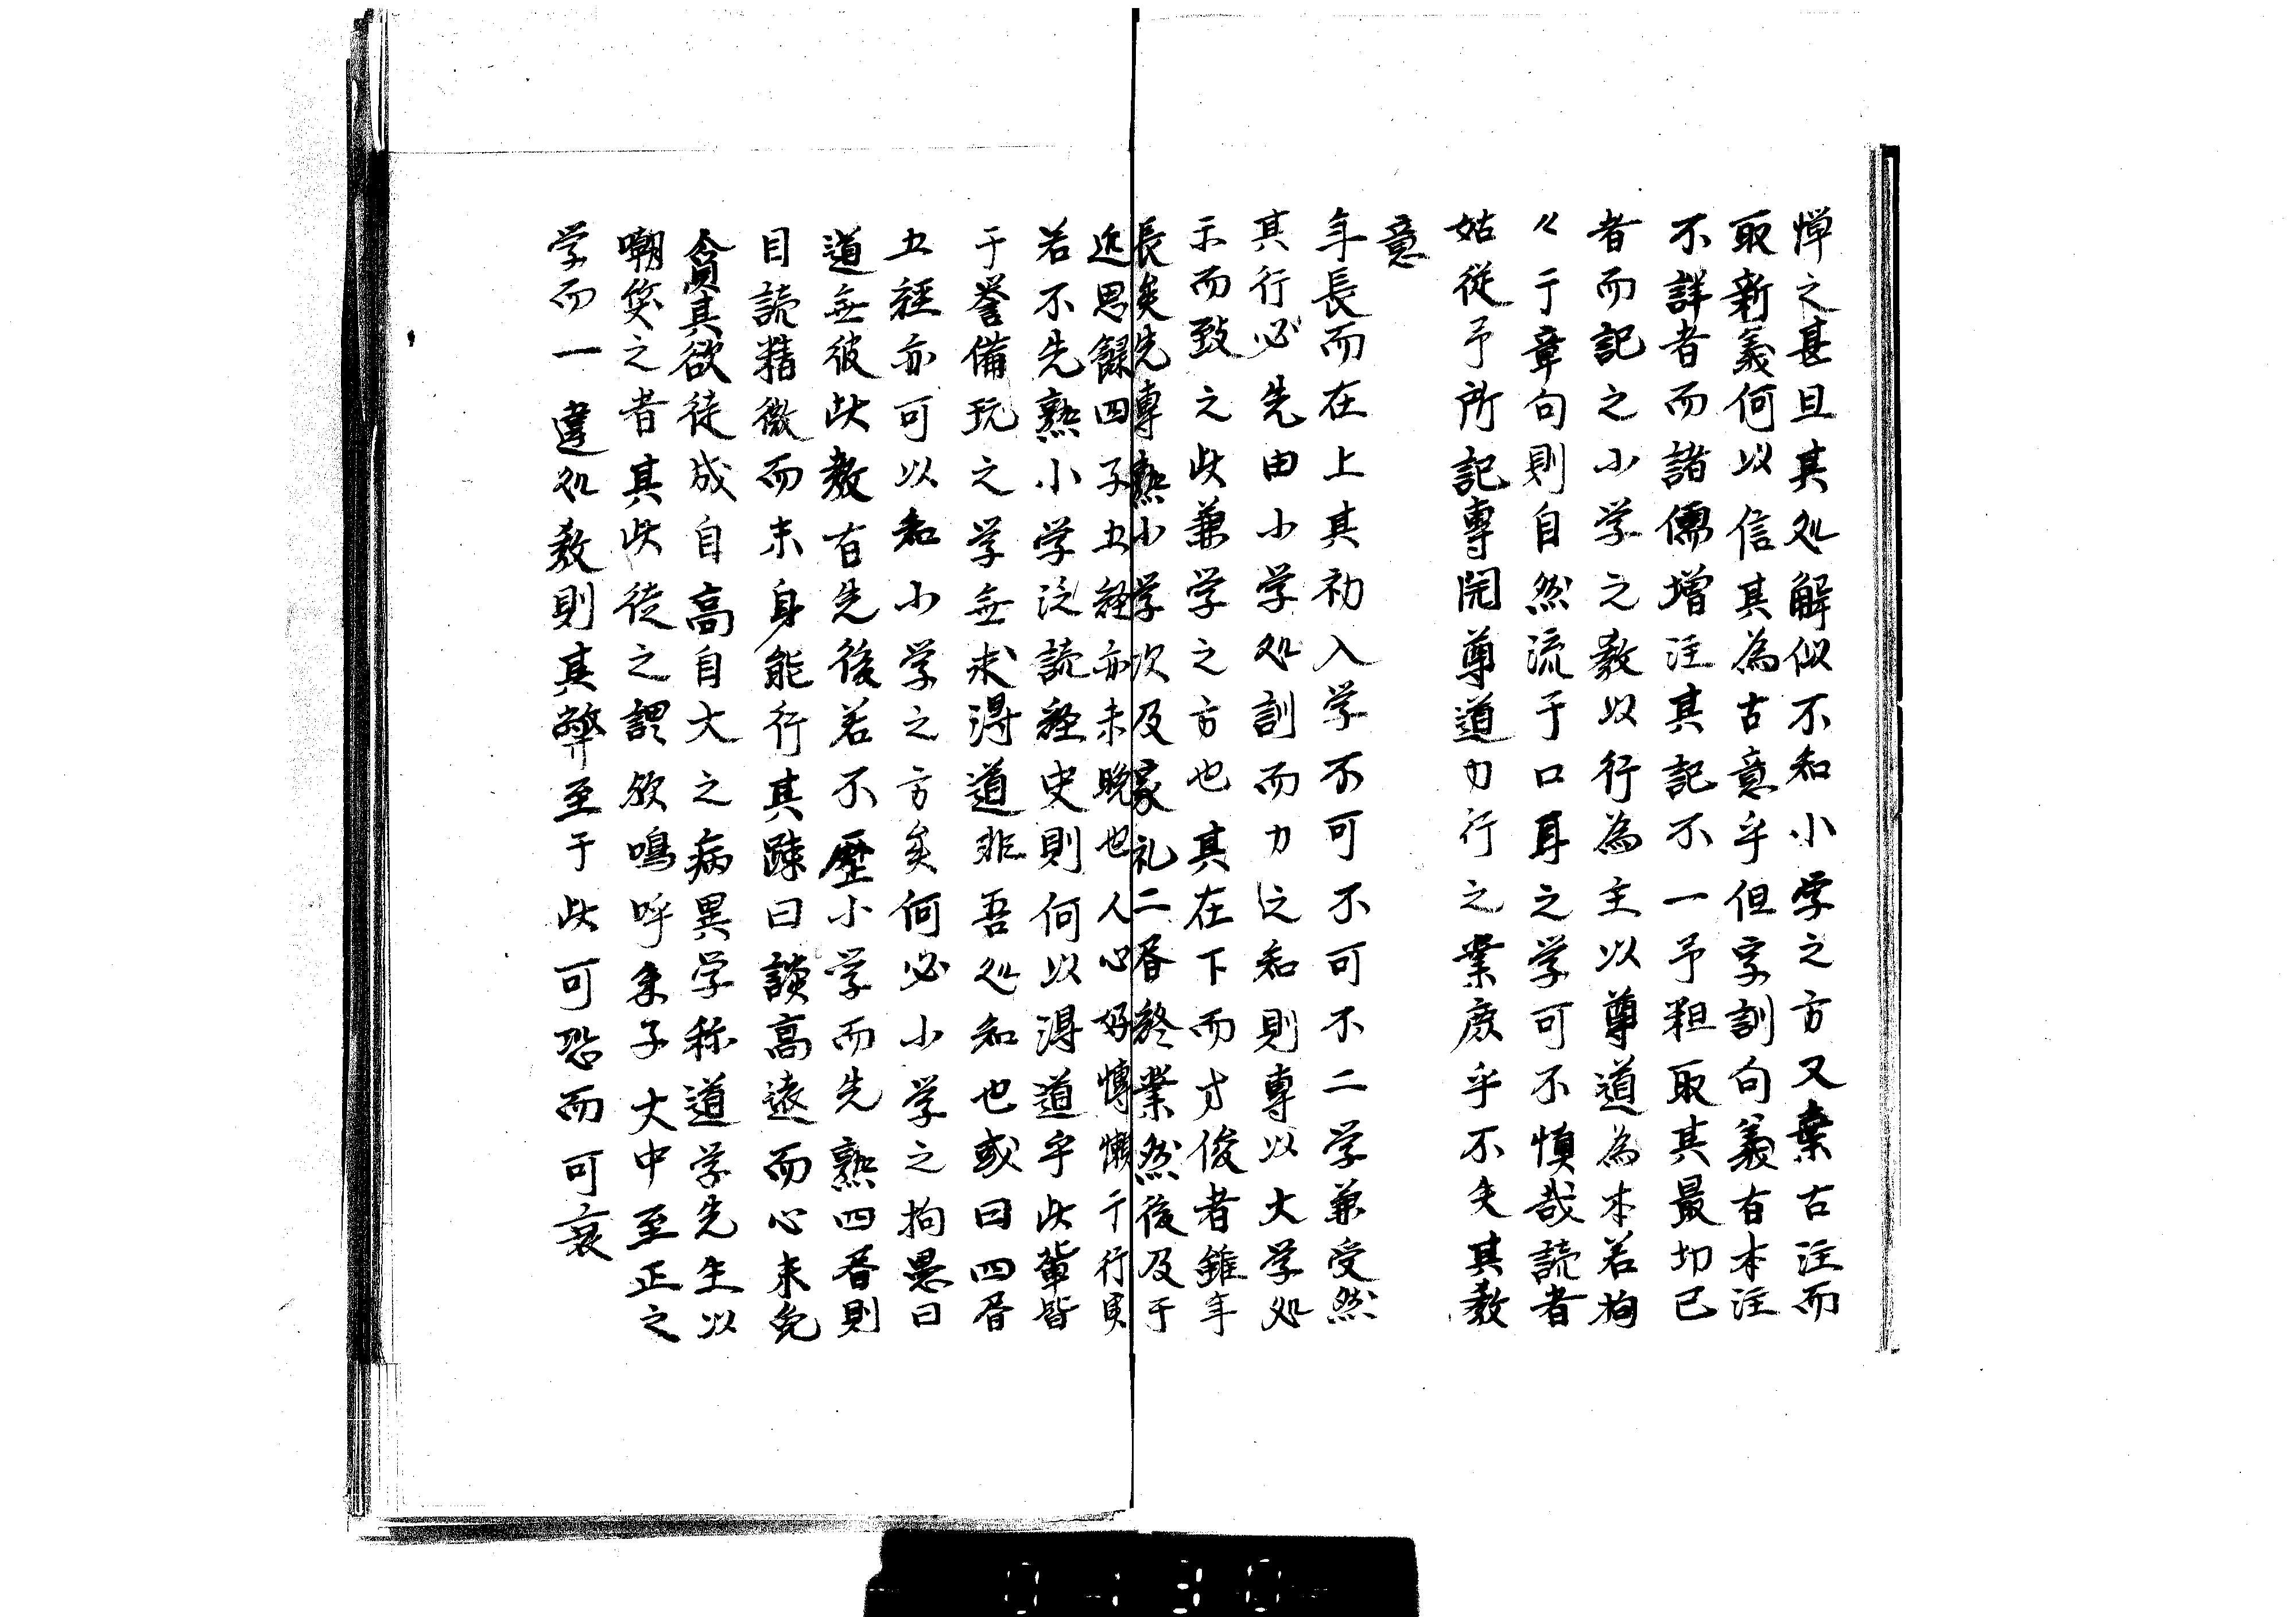 憚之甚且其処解似不知小学之方又棄古注而
取新義何以信其為古意乎但字訓句義有本注
不詳者而諸儒増注其記不一予粗取其最切已
者而記之小学之教以行為主以尊道為本若拘
々于章句則自然流于口耳之学可不慎哉読者
姑従予所記専閲尊道力行之業庶乎不失其教
意
年長而在上其初入学不可不可不二学兼受然
其行必先由小学処訓而力之知則専以大学処
示而致之此兼学之方也其在下而才俊者雖年
長矣先専熟小学次及家礼二書終業然後及于
近思録四子五経亦未晩也人心好博懶于行実
若不先熟小学泛読経史則何以得道乎此輩皆
于誉備玩之学無求得道非吾処知也或曰四書
五経亦可以知小学之方矣何必小学之拘愚曰
道無彼此教有先後若不歴小学而先熟四書則
目読精微而未身能行其踈口談高遠而心未免
貪其欲徒成自高自大之病異学称道学先生以
嘲笑之者其此徒之謂欤鳴呼朱子大中至正之
学而一違処教則其弊至于此可恐而可哀
0130